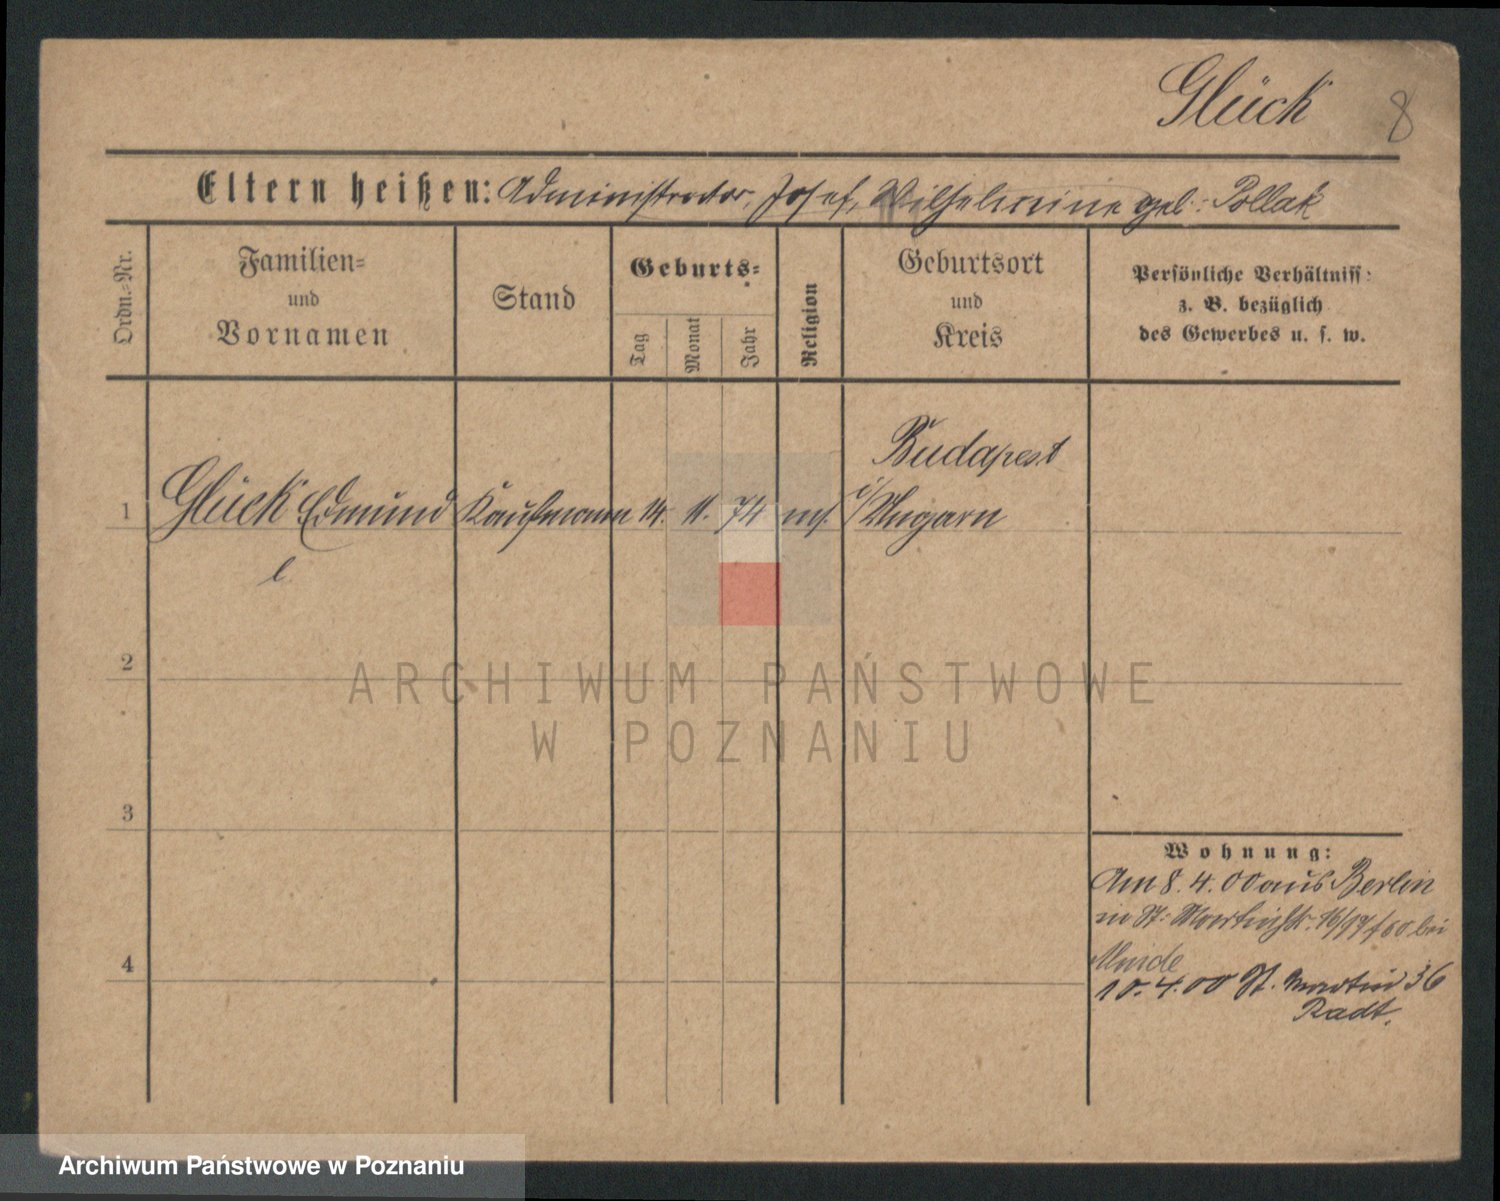 Glück 8
Eltern heißen: Administrator, Josef, Wilhelmine geb. Pollak
Ordn.-Nr.
Familien-
und
Vornamen
Stand
Geburts-
Tag
Monat
Jahr
Religion
Geburtsort
und
Kreis
Persönliche Verhältniss:
z. B. bezüglich
des Gewerbes u. s. w.
Budapest
1 Glück Edmund Kaufmann 14. 11. 74 i/Ungarn
l
2
ARCHIWUM PAŃSTWOWE
W POZNANIU
3
Wohnung:
Am 8. 4. 00 aus Berlin
in St: Martinstr. 16/17 bei
4
10. 4. 00 St. Martin 36
Radt.
Archiwum Państwowe w Poznaniu